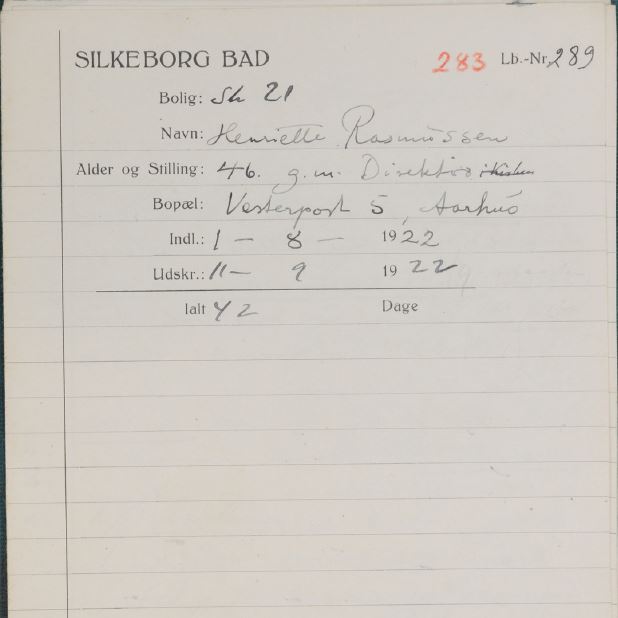 SILKEBORG BAD 283 Lb.-Nr. 289
Bolig: Sh 21
Navn: Henriette Rasmussen
Alder og Stilling: 46. g.m. Direktør
Bopæl: Vesterport 5, Aarhus
Indl.: 1 - 8 - 1922
Udskr.: 11 - 9 1922
Ialt 42 Dage